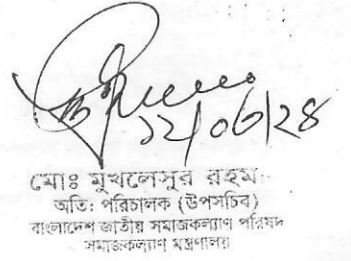 ১২/০৬/২৪
মোঃ মুখলেসুর রহম
অতি: পরিচালক (উপসচিব)
বাংলাদেশ জাতীয় সমাজকল্যাণ পরিষদ
সমাজকল্যাণ মন্ত্রণালয়